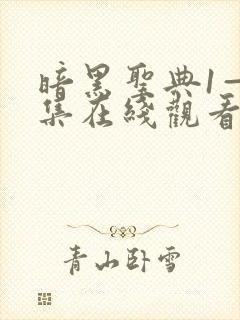 暗黑聖典1一
集在綫觀看
青山卧雪